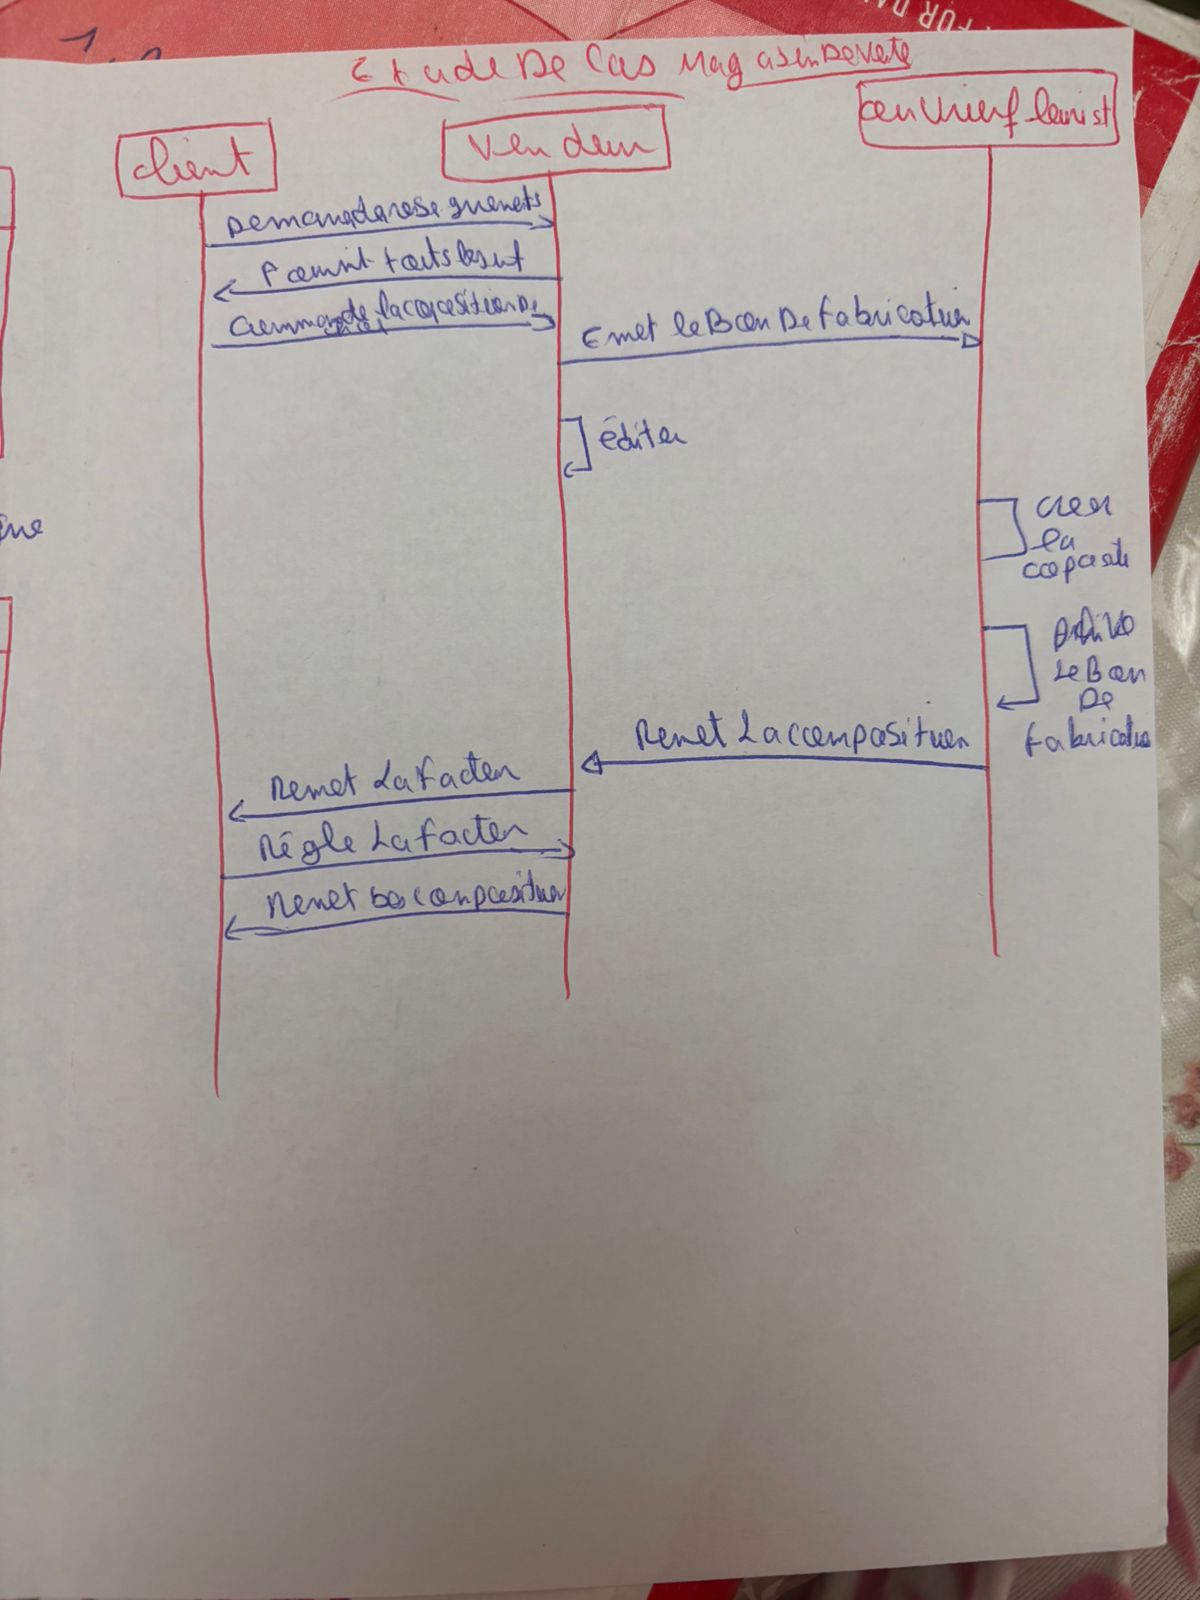 Etude De Cas Magasin De Vete
client
Vendeur
ouvrier fleurist
Demande renseignements
Fournit tout
Commande la coposition De
Emet le Bon De Fabrication
éditer
creer
la
coposite
Le Bon
De
Fabricatio
Remet La composition
Remet La Facteur
Régle La Facteur
Remet composition
FOR